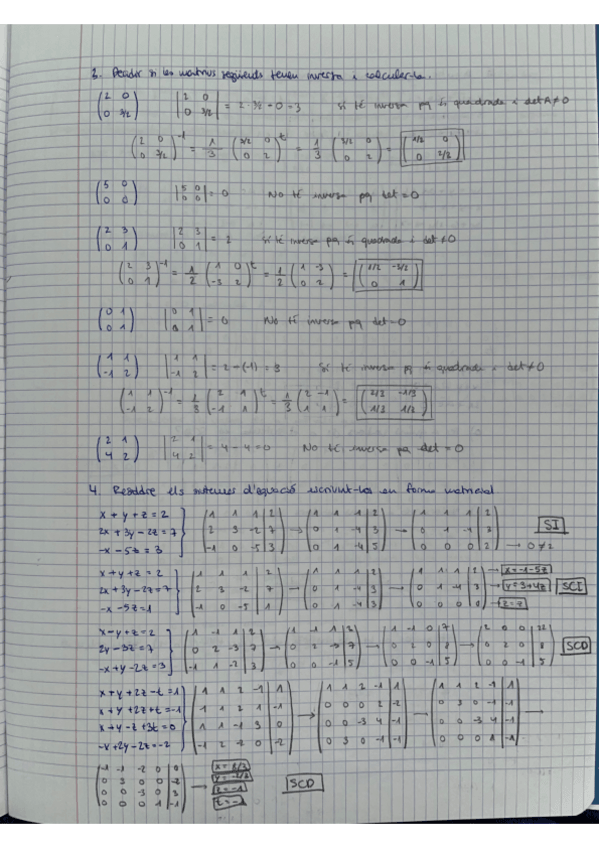 3. Decidir si les matrius següents tenen inversa i calcular-la.
(2 0 / 0 3/2) |2 0 / 0 3/2| = 2 · 3/2 - 0 = 3 Sí té inversa pq és quadrada i det A ≠ 0
(2 0 / 0 3/2)^-1 = 1/3 (3/2 0 / 0 2)^t = 1/3 (3/2 0 / 0 2) = (1/2 0 / 0 2/3)
(5 0 / 0 0) |5 0 / 0 0| = 0 No té inversa pq det = 0
(2 3 / 0 1) |2 3 / 0 1| = 2 Sí té inversa pq és quadrada i det ≠ 0
(2 3 / 0 1)^-1 = 1/2 (1 0 / -3 2)^t = 1/2 (1 -3 / 0 2) = (1/2 -3/2 / 0 1)
(0 1 / 0 1) |0 1 / 0 1| = 0 No té inversa pq det = 0
(1 1 / -1 2) |1 1 / -1 2| = 2 - (-1) = 3 Sí té inversa pq és quadrada i det ≠ 0
(1 1 / -1 2)^-1 = 1/3 (2 1 / -1 1)^t = 1/3 (2 -1 / 1 1) = (2/3 -1/3 / 1/3 1/3)
(2 1 / 4 2) |2 1 / 4 2| = 4 - 4 = 0 No té inversa pq det = 0
4. Resoldre els sistemes d'equació escrivint-los en forma matricial
x + y + z = 2
2x + 3y - 2z = 7
-x - 5z = 3
(1 1 1 | 2 / 2 3 -2 | 7 / -1 0 -5 | 3) → (1 1 1 | 2 / 0 1 -4 | 3 / 0 1 -4 | 5) → (1 1 1 | 2 / 0 1 -4 | 3 / 0 0 0 | 2) → 0 ≠ 2 SI
x + y + z = 2
2x + 3y - 2z = 7
-x - 5z = 1
(1 1 1 | 2 / 2 3 -2 | 7 / -1 0 -5 | 1) → (1 1 1 | 2 / 0 1 -4 | 3 / 0 1 -4 | 3) → (1 1 1 | 2 / 0 1 -4 | 3 / 0 0 0 | 0) → x = -1 - 5z → y = 3 + 4z → z = z SCI
x - y + z = 2
2y - 3z = 7
-x + y - 2z = 3
(1 -1 1 | 2 / 0 2 -3 | 7 / -1 1 -2 | 3) → (1 -1 1 | 2 / 0 2 -3 | 7 / 0 0 -1 | 5) → (1 -1 0 | 7 / 0 2 0 | 8 / 0 0 -1 | 5) → SCD
x + y + 2z - t = 1
x + y + 2z + t = -1
x + y - z + 3t = 0
-x + 2y - 2z = -2
(1 1 2 -1 | 1 / 1 1 2 1 | -1 / 1 1 -1 3 | 0 / -1 2 -2 0 | -2) → (1 1 2 -1 | 1 / 0 0 0 2 | -2 / 0 0 -3 4 | -1 / 0 3 0 -1 | -1) → (1 1 2 -1 | 1 / 0 3 0 -1 | -1 / 0 0 -3 4 | -1 / 0 0 0 1 | -1) →
→ z = -1 → t = -1 SCD